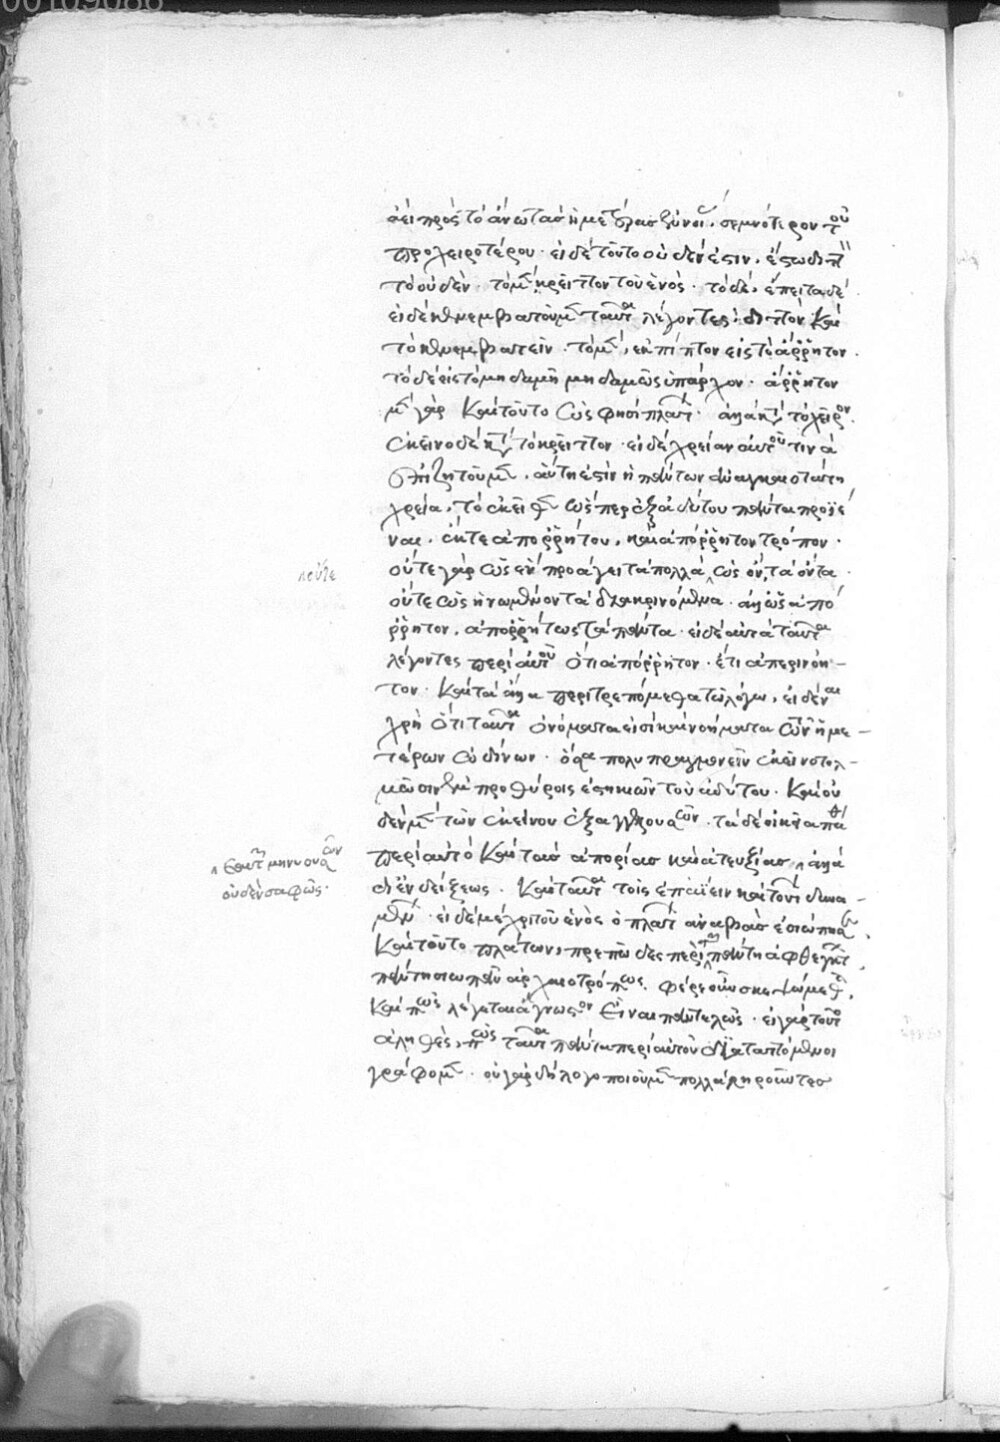 00109086
ἀεὶ πρὸς τὸ ἀνωτάσω ἡμετέρας ἐννοίας, σεμνότερον τοῦ
προχειροτέρου· εἰ δὲ τοῦτο οὐδέν ἐστιν, ἔστω διττὸν
τὸ οὐδέν· τὸ μὲν κρεῖττον τοῦ ἑνός· τὸ δὲ, ἐπέκεινα δέ·
εἰ δὲ κενεμβατοῦμεν ταῦτα λέγοντες, διττὸν καὶ
τὸ κενεμβατεῖν· τὸ μὲν, ἐκπίπτον εἰς τὸ ἄρρητον·
τὸ δὲ εἰς τὸ μηδαμῆ μηδαμῶς ὑπάρχον· ἄρρητον
μὲν γὰρ καὶ τοῦτο ὥς φησι πλάτων· ἀλλὰ κατὰ τὸ χεῖρον·
ἐκεῖνο δὲ κατὰ τὸ κρεῖττον· εἰ δὲ χρείαν αὐτοῦ τινὰ
ἐπιζητοῦμεν, αὕτη ἐστὶν ἡ πάντων ἀναγκαιοτάτη
χρεία, τὸ ἐκεῖθεν ὥσπερ ἐξ ἀδύτου πάντα προϊέ
ναι, ἔκ τε ἀπορρήτου, καὶ ἀπόρρητον τρόπον·
οὔτε γὰρ ὡς ἓν προάγει τὰ πολλὰ ὡς ὂν, τὰ ὄντα·
οὔτε ὡς ἡνωμένον τὰ διακρινόμενα· ἀλλ' ὡς ἀπό
ρρητον, ἀπορρήτως τὰ πάντα· εἰ δὲ αὐτὰ ταῦτα
λέγοντες περὶ αὐτοῦ ὅτι ἀπόρρητον· ἔτι ἀπερινόη-
τον· καὶ τὰ ἄλλα περιτρεπόμεθα τῷ λόγῳ, εἰδέναι
χρὴ ὅτι ταῦτα ὀνόματα εἰσὶ καὶ νοήματα τῶν ἡμε-
τέρων ὠδίνων· ὅσαι πολυπραγμονεῖν ἐκεῖνο τολ-
μῶσιν ἐν προθύροις ἑστηκῶν τοῦ ἀδύτου· καὶ οὐ
δὲν μὲν τῶν ἐκείνου ἐξαγγέλλουσῶν· τὰ δὲ οἰκεῖα πάθη
περὶ αὐτὸ καὶ τὰς ἀπορίας καὶ ἀτευξίας ἀλλὰ
δι' ἐνδείξεως· καὶ ταῦτα τοῖς ἐπαΐειν καὶ τούτων δυνα-
μένοις· εἰ δὲ μέχρι τοῦ ἑνὸς ὁ πλάτων ἀναβὰς ἐσιώπησε·
καὶ τοῦτο πλάτωνι πρεπωδες περὶ τῶν πάντη ἀφθέγκτων,
πάντη σιωπᾶν ἀρχαιοτρόπως· φέρε οὖν σκεψώμεθα,
καὶ πῶς λέγεται ἄγνωστον εἶναι παντελῶς· εἰ γὰρ τοῦτο
ἀληθὲς, πῶς ταῦτα πάντα περὶ αὐτοῦ διαταττόμενοι
γράφομεν· οὐ γὰρ δὴ λογοποιοῦμεν πολλὰ ληροῦντες
οὔτε
ἑαυτῶν μηνυουσῶν
οὐδὲν σαφῶς·